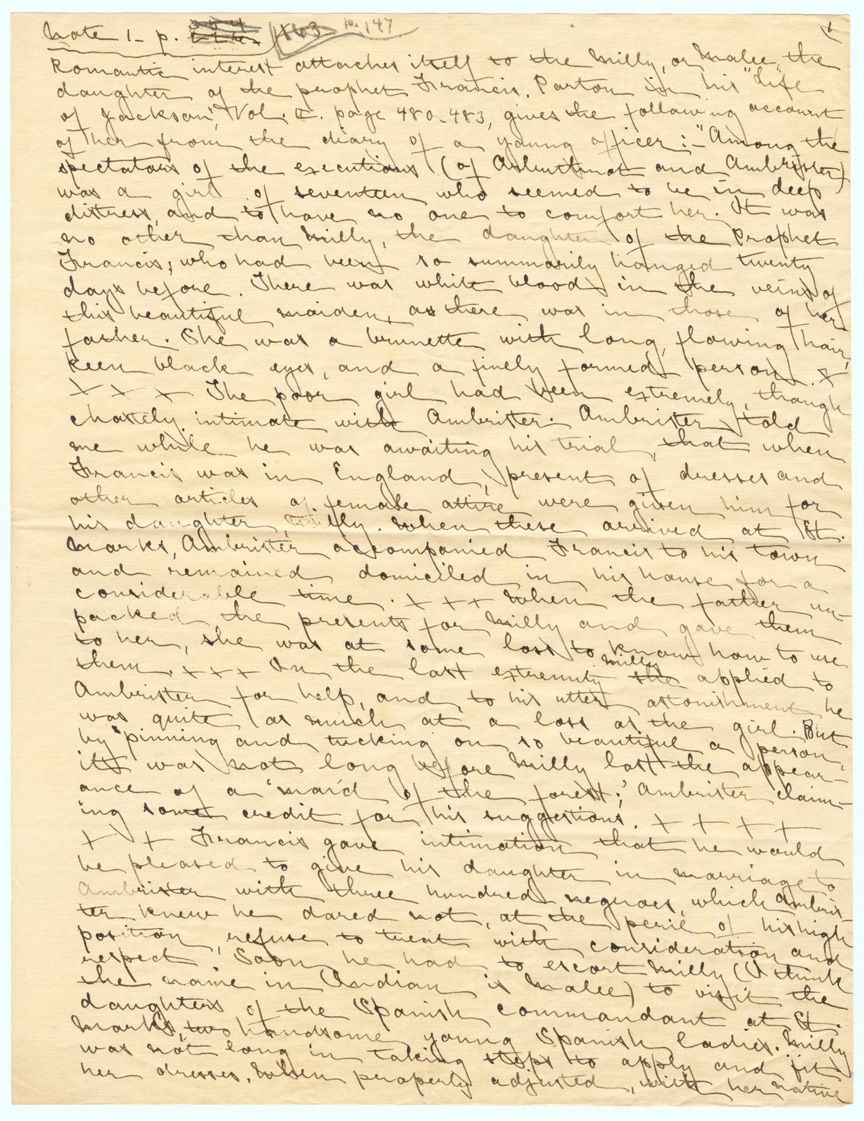 Note 1 - p. 163 p. 147
1
Romantic interest attaches itself to the Milly, or Malee, the
daughter of the prophet Francis. Parton in his "Life
of Jackson," Vol. II. page 480-483, gives the following account
of her from the diary of a young officer:- "Among the
spectators of the executions (of Arbuthnot and Ambrister)
was a girl of seventeen who seemed to be in deep
distress, and to have no one to comfort her. It was
no other than Milly, the daughter of the Prophet
Francis, who had been so summarily hanged twenty
days before. There was white blood in the veins of
this beautiful maiden, as there was in those of her
father. She was a brunette with long, flowing hair,
keen black eyes, and a finely formed person. x
x x x The poor girl had been extremely, though
chastely intimate with Ambrister. Ambrister told
me while he was awaiting his trial, that when
Francis was in England, present of dresses and
other articles of female attire were given him for
his daughter, Milly. When these arrived at St.
Marks, Ambrister accompanied Francis to his town
and remained domiciled in his house for a
considerable time. x x x When the father un-
packed the presents for Milly and gave them
to her, she was at some loss to know how to use
them. x x x In the last extremity Milly applied to
Ambrister for help, and to his utter astonishment he
was quite as much at a loss as the girl. But
by "pinning and tucking on so beautiful a person,
it was not long before Milly lost the appear-
ance of a 'maid of the forest;' Ambrister claim-
ing some credit for his suggestions. x x x x
x x Francis gave intimation that he would
be pleased to give his daughter in marriage to
Ambrister with three hundred negroes, which Ambris-
ter knew he dared not, at the peril of his high
position, refuse to treat with consideration and
respect. Soon he had to escort Milly (I think
the name in Indian is Malee) to visit the
daughters of the Spanish commandant at St.
Marks, two handsome young Spanish ladies. Milly
was not long in taking steps to apply and fit
her dresses. When properly adjusted, with her native